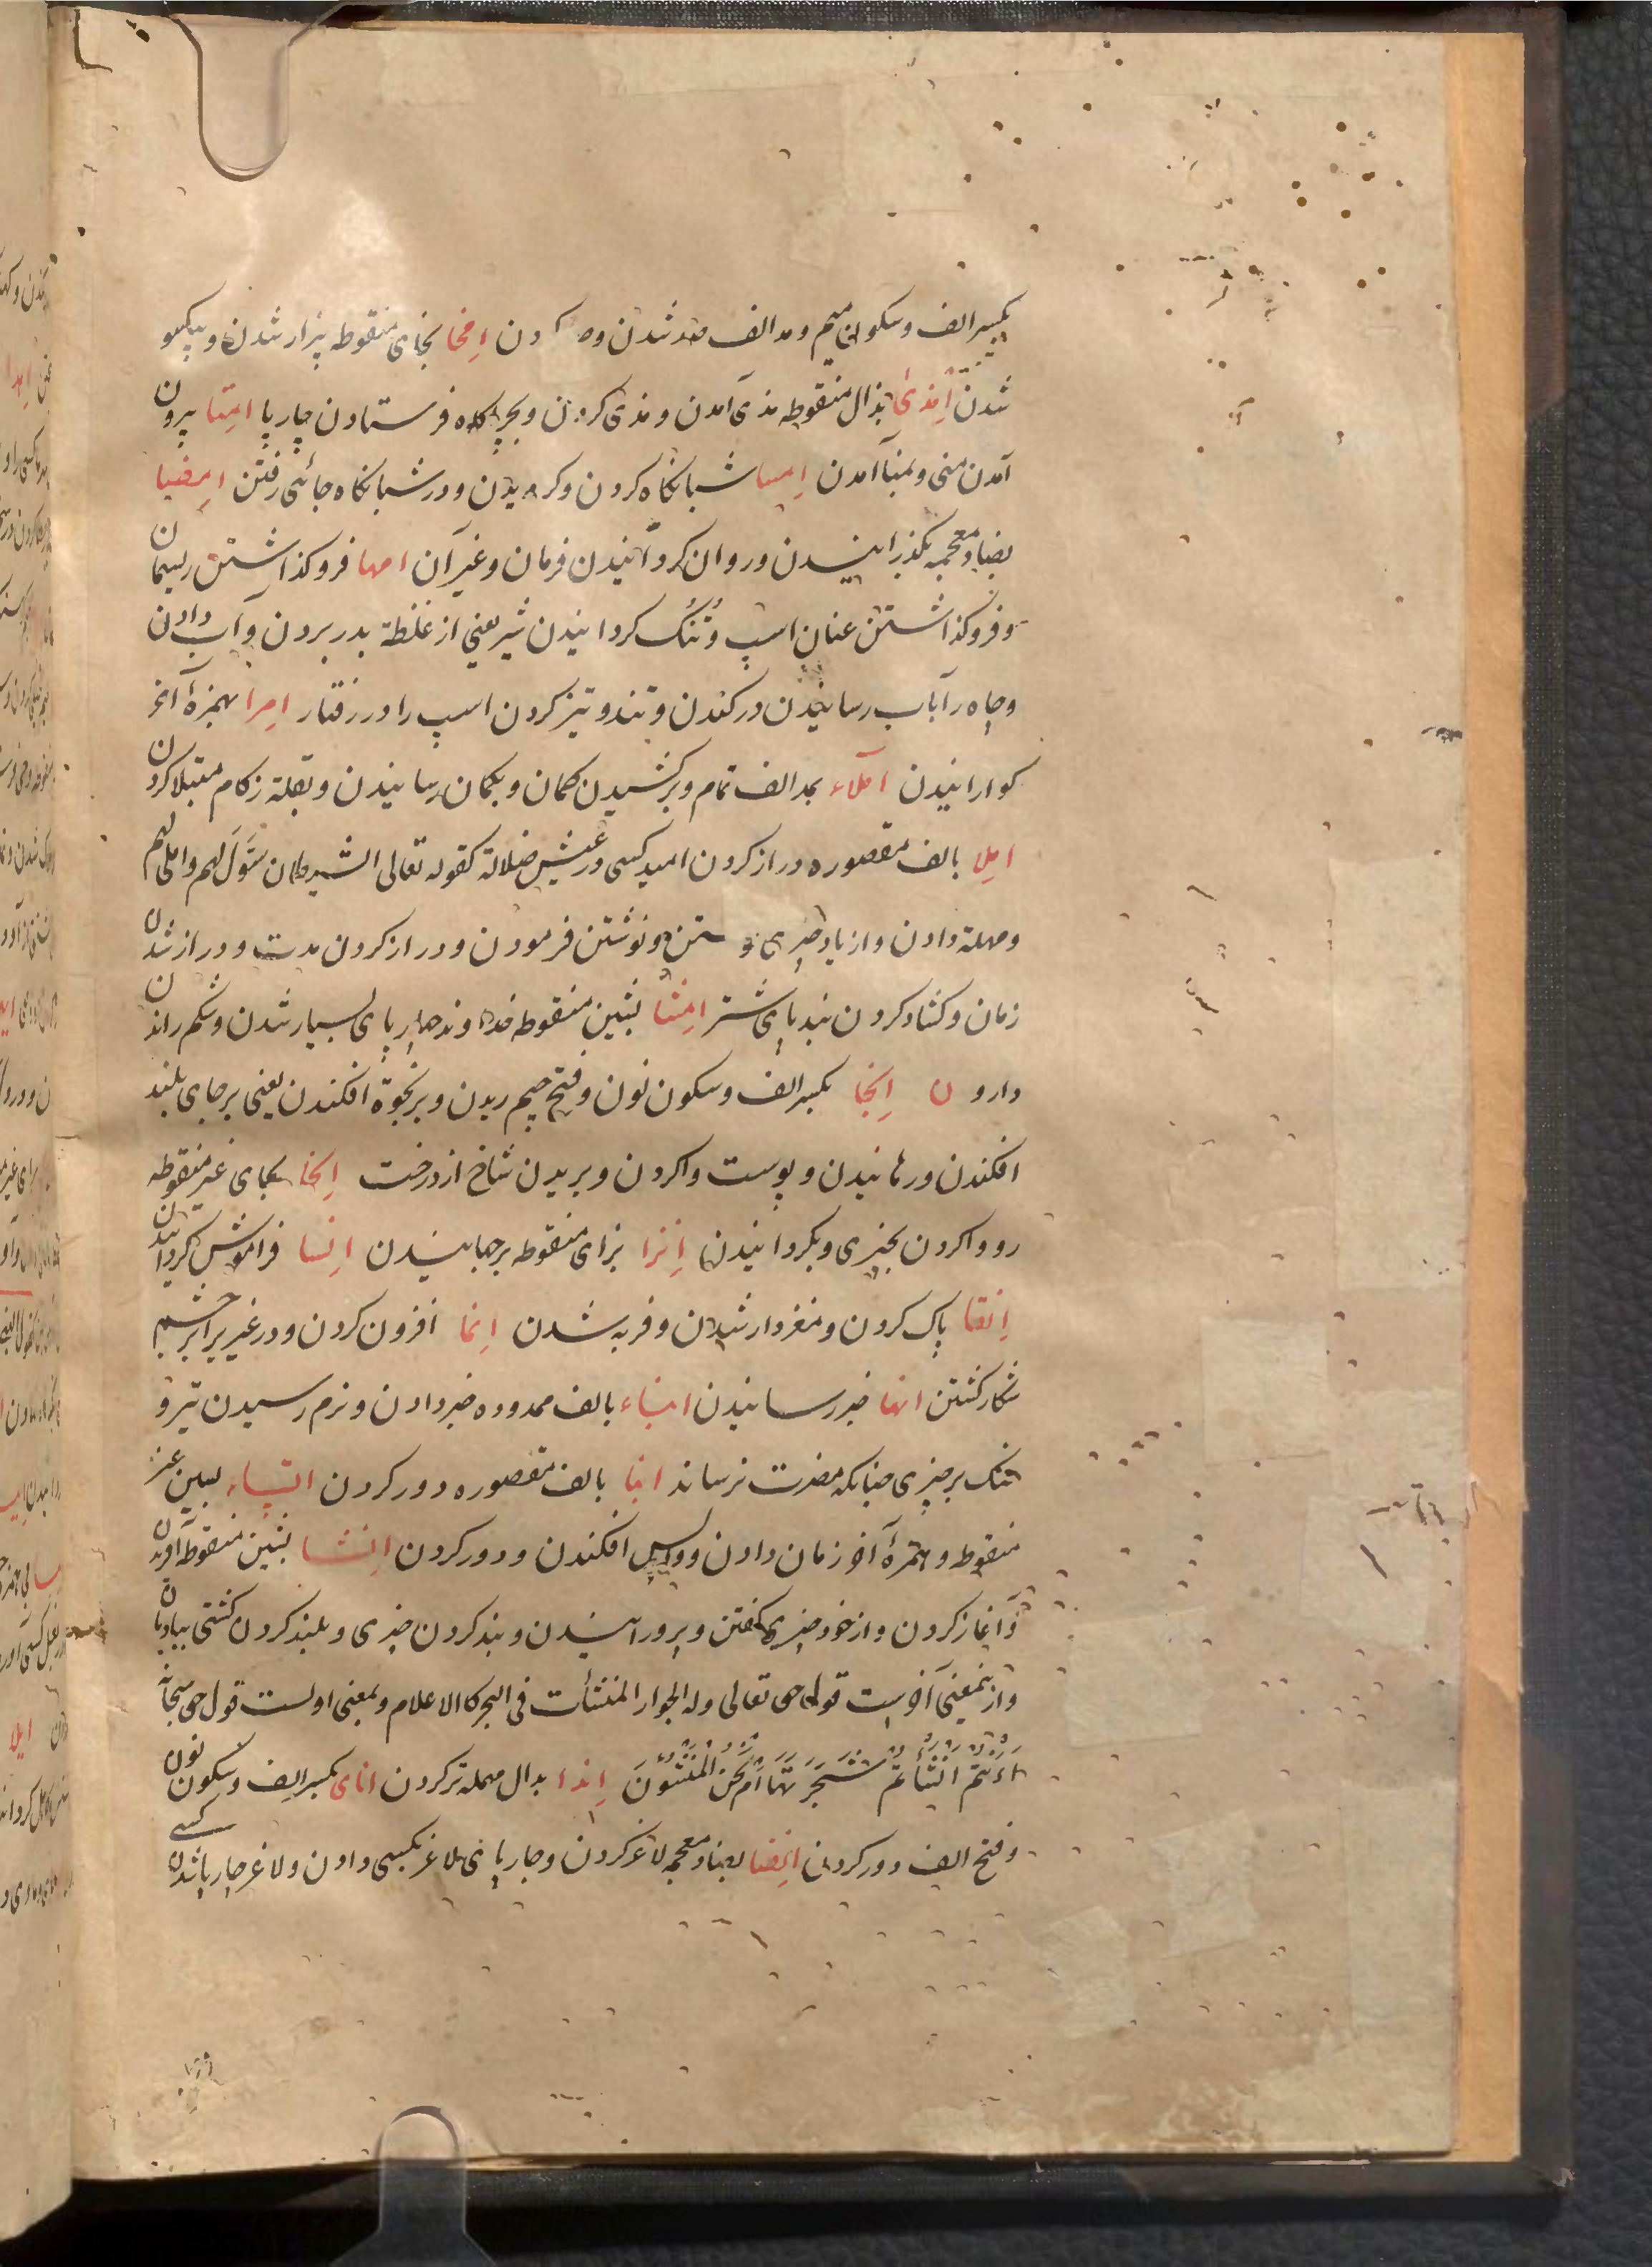 بکسر الف و سکون میم و مد الف شدن کردن اِمخا بخای منقوطه بیزار شدن و بیکسو
شدن اِمذیٰ بذال منقوطه مذی آمدن و مذی کردن و بچراگاه فرستادن چارپا امِنا بیرون
آمدن منی و بمنا آمدن اِمسا شبانگاه کردن و گردیدن و در شبانگاه جائی رفتن اِمضیا
بضاد معجمه بگذرانیدن و روان گردانیدن فرمان و غیر آن امها فروگذاشتن ریسمان
و فروگذاشتن عنان اسپ و تُنُک گردانیدن شیر یعنی از غلظة بدر بردن و آب دادن
و چاه را بآب رسانیدن در کندن و تند و تیز کردن اسپ را در رفتار اِمرا بهمزهٔ آخر
گوارانیدن املاء بمد الف تمام و برکشیدن کمان و بکمان رسانیدن و بعلة زکام مبتلا کردن
اِملا بالف مقصوره دراز کردن امید کسی در عیش ضلالة کقوله تعالی الشیطان سَوَّلَ لهم و املی لهم
و مهلة دادن و از یاد چیزی و نوشتن فرمودن و دراز کردن مدت و دراز شدن
زمان و کشاد کردن بند پای شتر امِشا بشین منقوطه خداوند چارپای بسیار شدن و شکم راندن
دارو اِنجا بکسر الف و سکون نون و فتح جیم ریدن و بر نجوة افکندن یعنی بر جای بلند
افکندن و رهانیدن و پوست واکردن و بریدن شاخ از درخت اِنحا بحای غیر منقوطه
رو واکردن بچیزی و بگردانیدن اِنزا بزای منقوطه برجهانیدن اِنسا فراموش گردانیدن
اِنقا پاک کردن و مغزدار شدن و فربه شدن اِنما افزون کردن و در غیر برابر چشم
شکار کشتن انها خبر رسانیدن انباء بالف ممدوده خبر دادن و نرم رسیدن تیر و
تنک بر چیزی چنانکه مضرت نرساند انبا بالف مقصوره دور کردن انساء بسین غیر
منقوطه و همزهٔ آخر زمان دادن و واپس افکندن و دور کردن اِنشا بشین منقوطه آفریدن
و آغاز کردن و از خود چیزی گفتن و پرورانیدن و بند کردن چیزی و بلند کردن کشتی ببادبان
و از بمعنی آخرست قول حق تعالی وله الجوار المنشأت فی البحر کالاعلام و بمعنی اولست قول حق سبحانه
ءَاَنْتُمْ اَنْشَأْتُمْ شَجَرَتَهَا اَمْ نَحْنُ الْمُنْشِئُونَ اِندا بدال مهمله تر کردن انای بکسر الف و سکون نون
و فتح الف دور کردن اِنضا بضاد معجمه لاغر کردن و چارپای لاغر بکسی دادن و لاغر چارپا شدن کسی